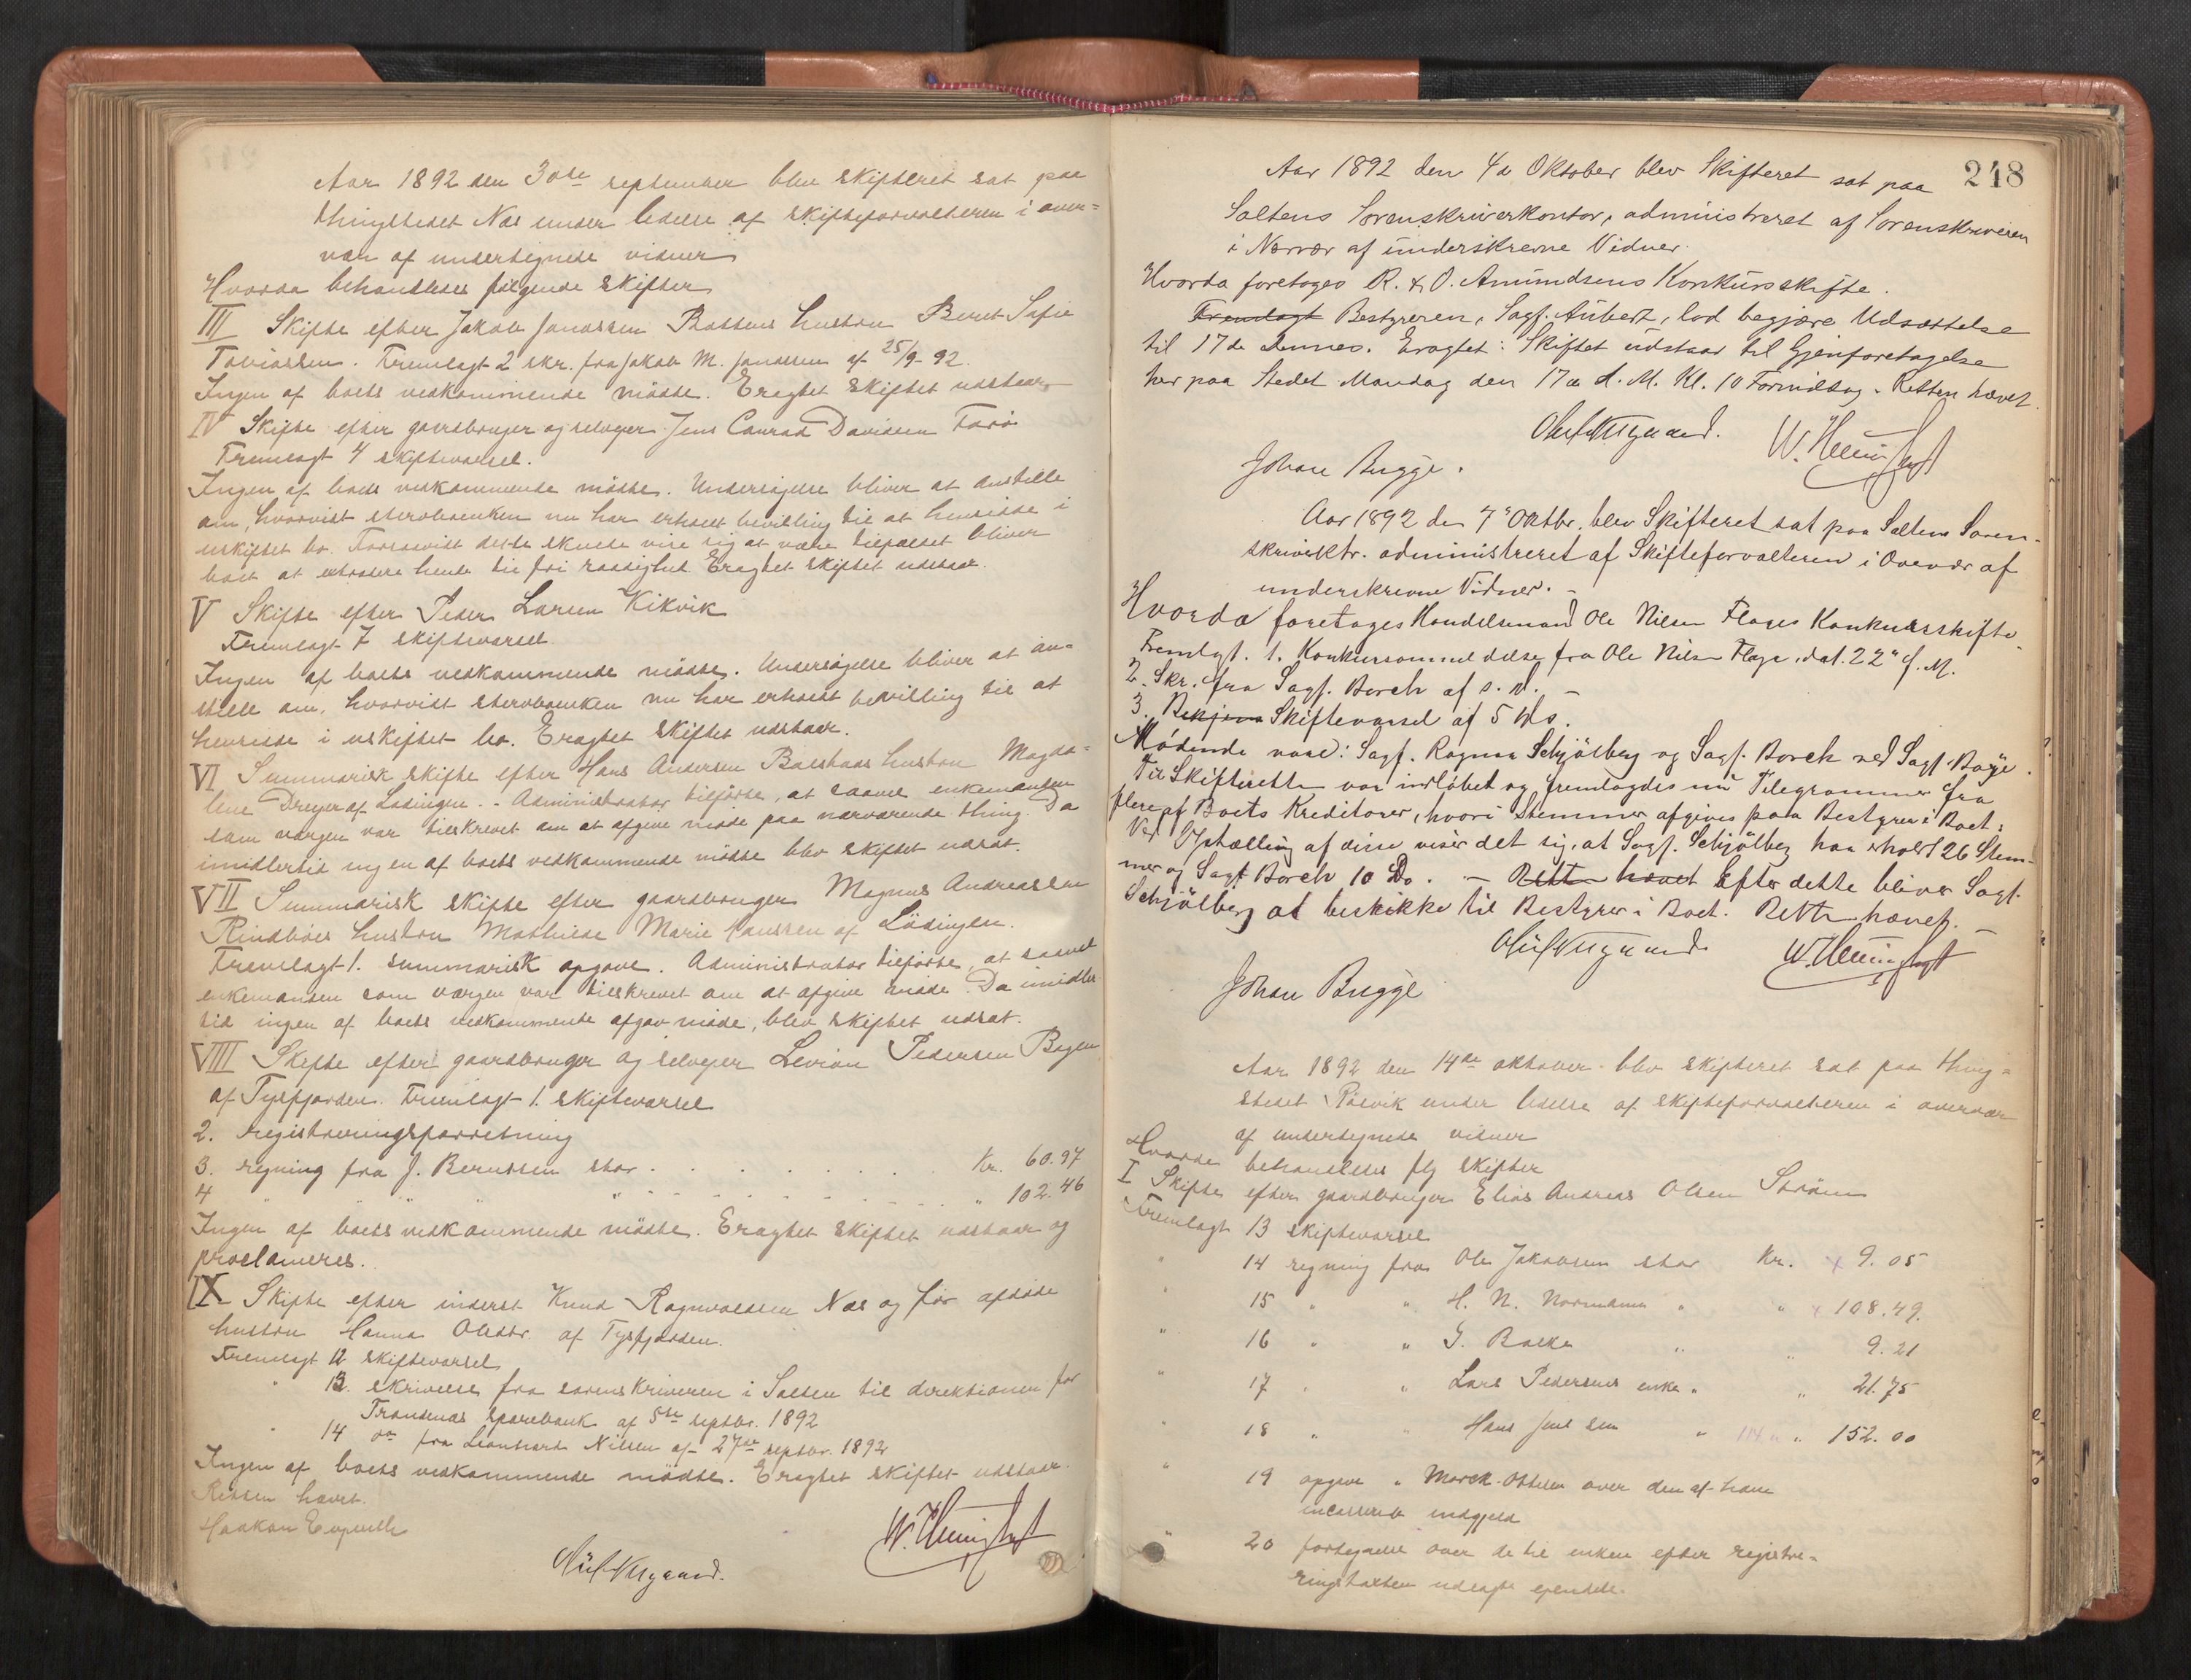 Aar 1892 den 30te september blev skifteret sat paa
thingstedet Næs under ledelse af skifteforvalteren i over-
vær af undertegnede vidner
Hvorda behandledes følgende skifter
III Skifte efter Jakob Janassen Bottens hustru Beret Sofie
Tobiassen. Fremlagt 2 skr. fra Jakob M. Janassen af 25/9 92.
Ingen af boets vedkommende mødte. Eragtet Skiftet udstaar
IV Skifte efter gaardbruger og selveier Jens Conrad Davidsen Tarø
Fremlagt 4 skiftevarsel.
Ingen af boets vedkommende mødte. Undersøgelse bliver at anstille
om, hvorvidt sterboenken nu har erholdt bevilling til at hensidde i
uskiftet bo. Forsaavidt dette skulde vise sig at være tilfældet bliver
boet at extradere hende til fri raadighed. Eragtet skiftet udstaar.
V Skifte efter Peder Larsen Kikvik
Fremlagt 7 skiftevarsel
Ingen af boets vedkommende mødte. Undersøgelse bliver at an-
stille om, hvorvidt sterboenken nu har erholdt bevilling til at
hensidde i uskiftet bo. Eragtet skiftet udstaar.
VI Summarisk skifte efter Hans Andersen hustru Magda-
lene Dreyer af Lødingen. Administrator tilførte, at saavel enkemanden
som værgen var tilskrevet om at afgive møde paa nærværende thing. Da
imidlertid ingen af boets vedkommende mødte blev skiftet udsat.
VII Summarisk skifte efter gaardbruger Magnus Andreassen
Rindbøes hustru Mathilde Marie Hanssen af Lødingen.
Fremlagt 1. summarisk opgave. Administrator tilførte, at saavel
enkemanden som værgen var tilskrevet om at afgive møde. Da imidler
tid ingen af boets vedkommende afgav møde, blev skiftet udsat.
VIII Skifte efter gaardbruger og selveier Levion Pedersen Bogen
af Tysfjorden. Fremlagt 1. skiftevarsel
2. registreringsforretning
3. regning fra J. Berntsen stor . . . . . . . . Kr. 60.97
4 " " " " " - - - - - - - - - " 102.46
Ingen af boets vedkommende mødte. Eragtet skiftet udstaar og
proclameres.
IX Skifte efter inderst Knud Ragnvaldsen Næs og før afdøde
hustru Hanna Olsdtr. af Tysfjorden.
Fremlagt 12 skiftevarsel
" 13. skrivelse fra sorenskriveren i Salten til direktionen for
Trondenæs sparebank af 5te septbr. 1892
" 14 do fra Leonhard Nilsen af 27de septbr. 1892
Ingen af boets vedkommende mødte. Eragtet skiftet udstaar.
Retten hævet.
Haakon
Oluf Nygaard.
248
Aar 1892 den 4de Oktober blev Skifteret sat paa
Saltens Sorenskriverkontor, administreret af Sorenskriveren
i Nærvær af underskrevne Vidner.
Hvorda foretoges R. & O. Amundsens Konkursskifte.
Fremlagt Bestyreren, Sagf. Aubert, lod begjære Udsættelse
til 17de dennes. Eragtet: Skiftet udstaar til Gjenforetagelse
her paa Stedet Mandag den 17de d. M. Kl. 10 Formiddag. Retten hævet.
Oluf Nygaard.
Johan Bugge.
Aar 1892 den 7' Oktbr. blev Skifteret sat paa Saltens Soren-
skriverktr. administreret af Skifteforvalteren i Overvær af
underskrevne Vidner. -
Hvorda foretoges Handelsmand Ole Nilsen Flages Konkursskifte.
Fremlgt. 1. Konkursanmeldelse fra Ole Nilsen Flage, dat. 22" f. M.
2. Skr. fra Sagf. Borch af s. D. -
3. Skiftevarsel af 5 ds.
Mødende vare: Sagf. Ragnar Schjølberg og Sagf. Borch ved Sagf. Bøye.
Til Skifteretten var indløbet og fremlagdes nu Telegrammer fra
flere af Boets Kreditorer, hvori Stemmer afgives paa Bestyrer i Boet.
Ved Optælling af disse viser det sig, at Sagf. Schjølberg har erholdt 26 Stem-
mer og Sagf. Borch 10 Do. - Retten hævet Efter dette bliver Sagf.
Schjølberg at beskikke til Bestyrer i Boet. Retten hævet.
Oluf Nygaard
Johan Bugge
Aar 1892 den 14de oktober blev skifteret sat paa thing-
stedet Røsvik under ledelse af skifteforvalteren i overvær
af undertegnede vidner
Hvorda behandledes flg skifter
I Skifte efter gaardbruger Elias Andreas Olsen Strøm
Fremlagt 13 skiftevarsel
" 14 regning fra Ole Jakobsen stor Kr. 9.05
" 15 " " H. N. Normann " " 108.49.
" 16 " " G. " " 9.21
" 17 " " Lars Pedersens enke " " 21.75
" 18 " " Hans Juul sen " " 152.00
" 19 opgave " Morck-Ottesen over den af ham
incasserede indgjeld
" 20 fortegnelse over de til enken efter registre-
ringstaxten udlagte eiendele.